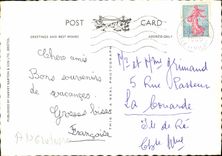 POST CARD
GREETINGS AND BEST WISHES
ADDRESS ONLY
Chers amis
Bons souvenirs
de vacances.
Grosses bises
Françoise
Mr et Mme Armand
5 Rue Pasteur
La Couarde
Ile de Ré
Cte Mme